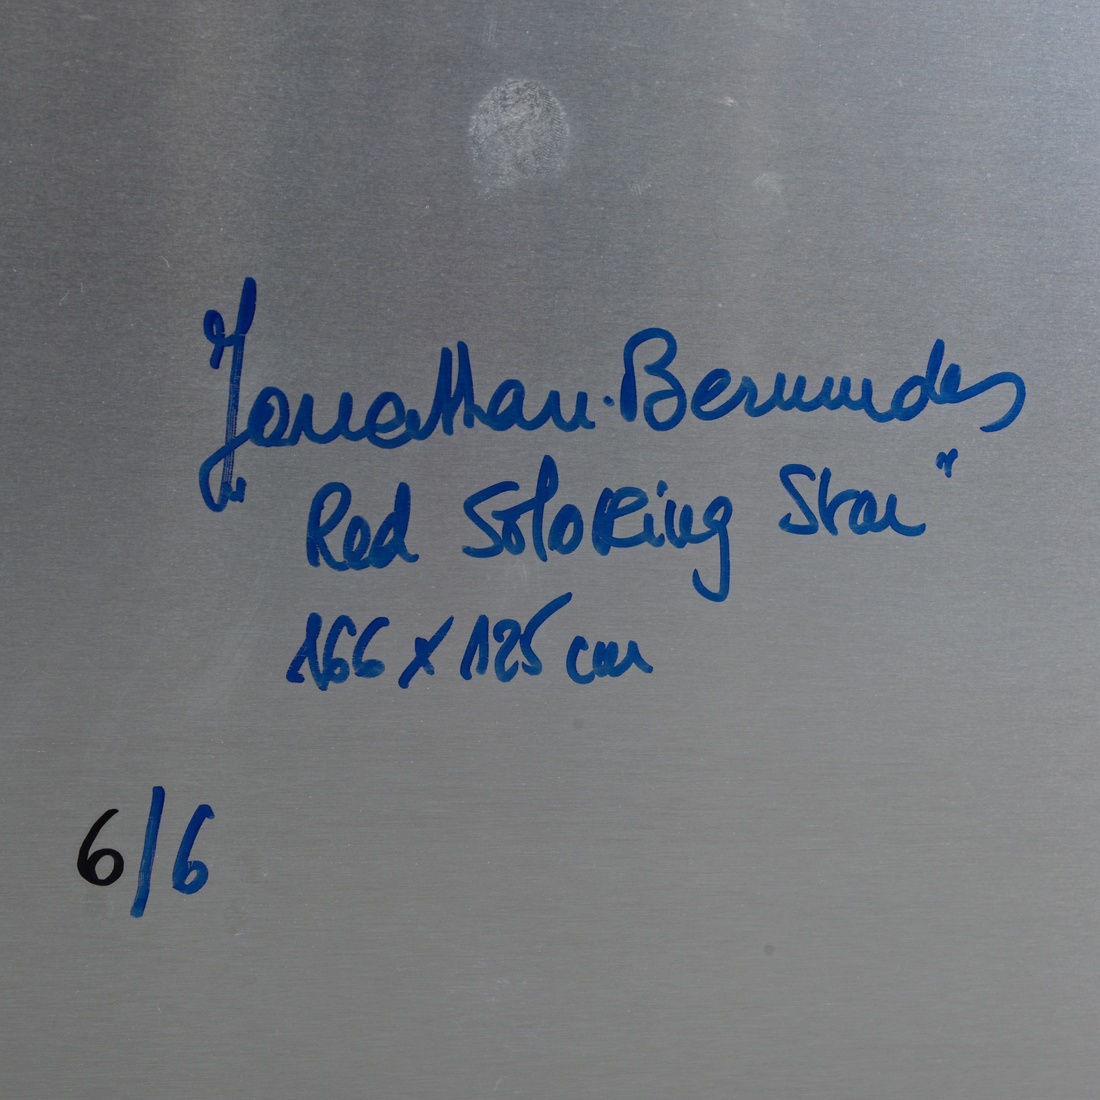 Jonathan Bermudes
"Red Soloking Star"
166 x 125 cm
6/6